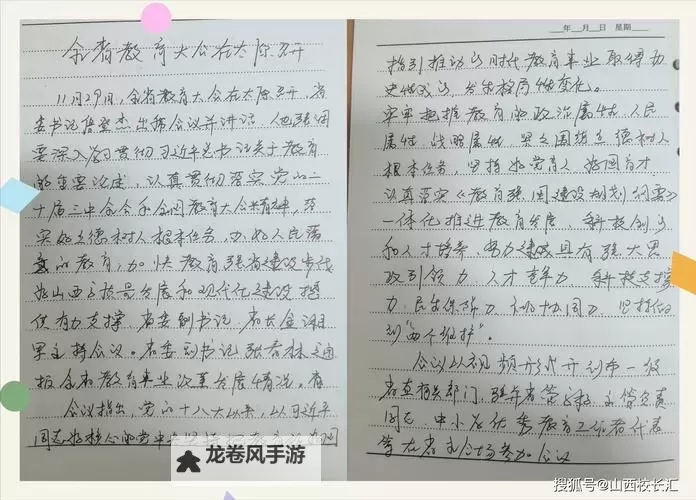 全省教育大会在太原召开
11月29日,全省教育大会在太原召开,省
委书记唐登杰出席会议并讲话,他强调
要深入学习贯彻习近平总书记关于教育
的重要论述,认真贯彻落实党的二
十届三中全会和全国教育大会精神,落
实好立德树人根本任务,办好人民满
意的教育,加快教育强省建设步伐
为山西高质量发展和现代化建设提
供有力支撑。省委副书记、省长金湘
军主持会议。省委副书记张春林通
报全省教育事业改革发展情况。
会议指出,党的十八大以来,以习近平
同志为核心的党中央
年 月 日 星期
指引推动新时代教育事业取得历
史性成就,发生格局性变化。
牢牢把握教育的政治属性、人民
属性、战略属性,紧紧围绕立德树人
根本任务,坚持为党育人、为国育才
认真落实《教育强国建设规划纲要》
一体化推进教育发展、科技创新
和人才培养,努力建设具有强大思
政引领力、人才竞争力、科技支撑
力、民生保障力、社会协同力
到“两个维护”。
会议以视频形式开到市一级
省直有关部门、驻并省管高校主要负责
同志,中小学优秀教育工作者代表
等在省主会场参加会议
龙卷风手游
搜狐号@山西校长汇